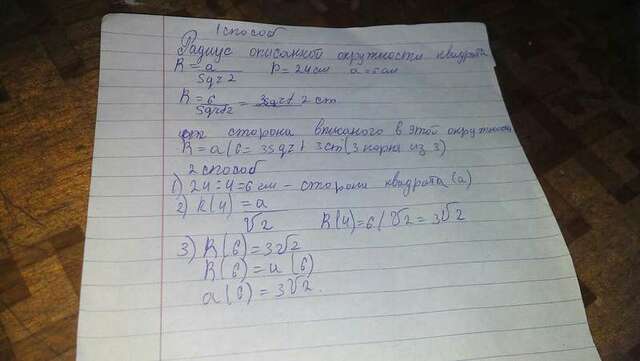 1 способ
Радиус описанной окружности квадрата
R = a
Sqr 2 P = 24 см a = 6 см
R = 6
Sqr 2 = 3sqrt 2 cm
сторона вписаного в этой окружности
R = a(6 = 3sqrt 3cm (3 корня из 3)
2 способ
1) 24 ÷ 4 = 6 см - сторона квадрата (a)
2) R(4) = a
√2 R(4) = 6 / √2 = 3√2
3) R(6) = 3√2
R(6) = a (6)
a (6) = 3√2.